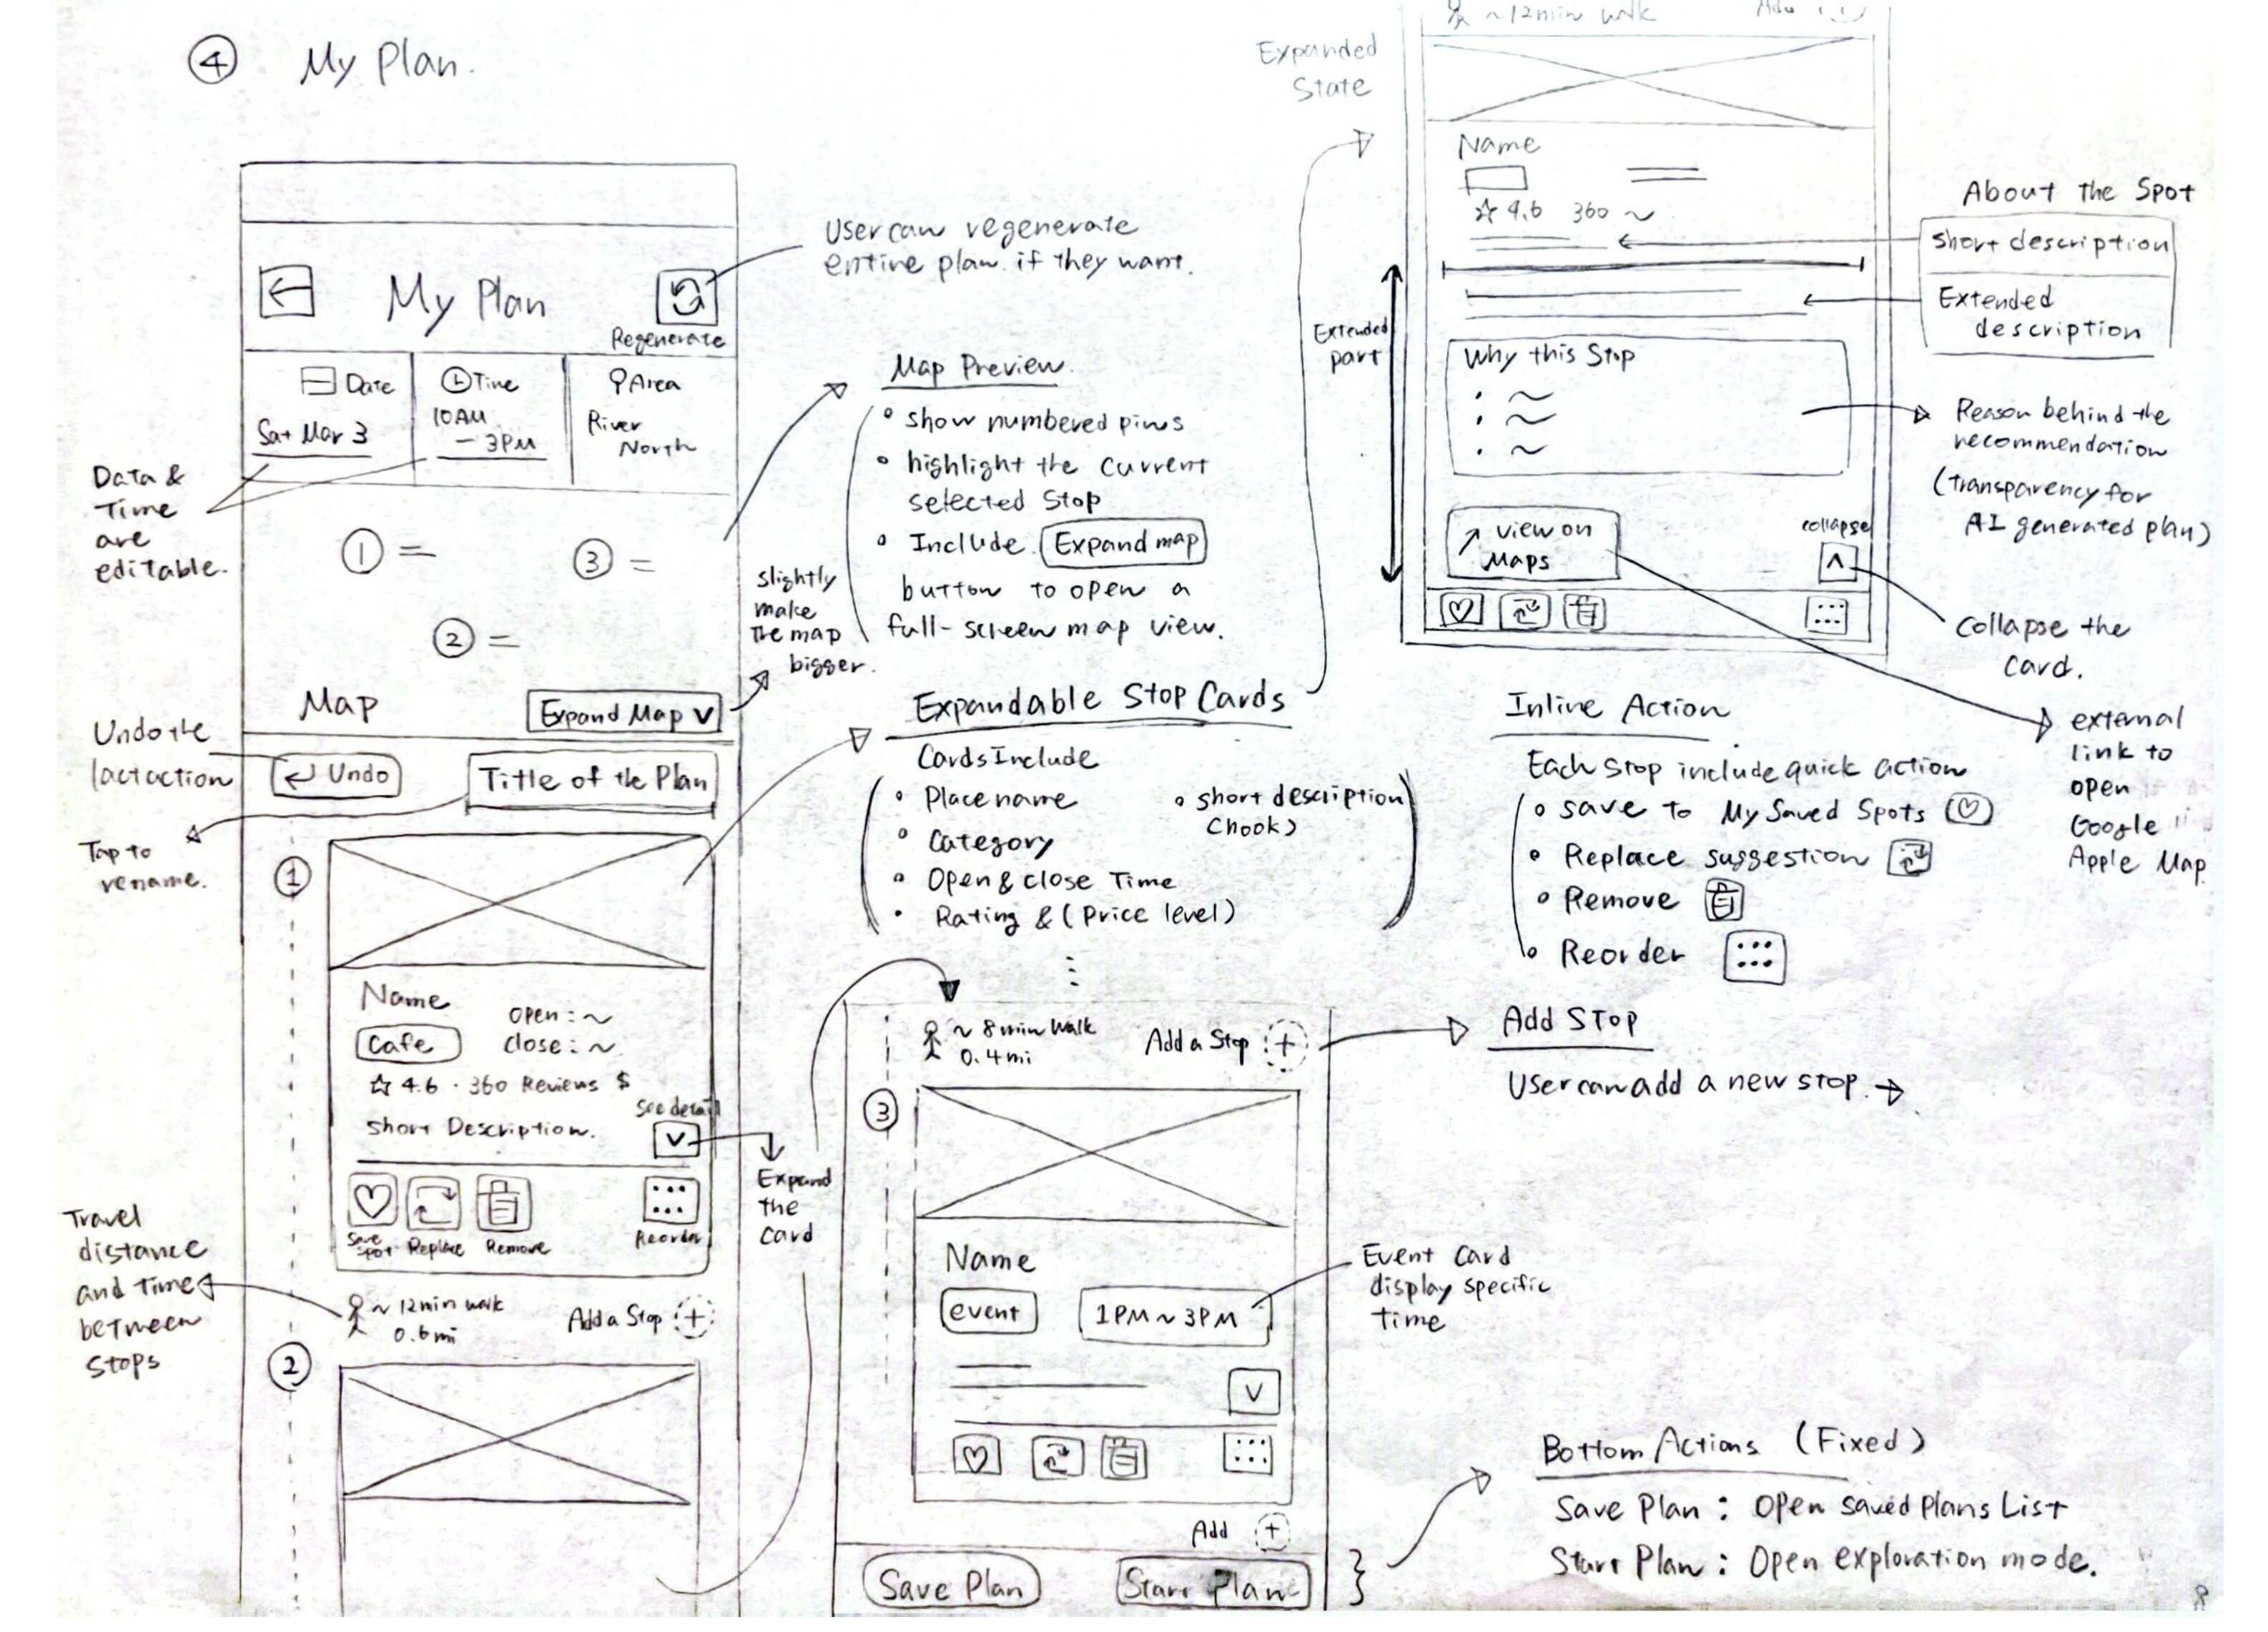 ④ My Plan.
My Plan
Regenerate
User can regenerate
entire plan. if they want.
Date
Sat Mar 3
Time
10AM
- 3PM
Area
River
North
Data &
Time
are
editable.
① =
③ =
② =
Map
Expand Map ∨
slightly
make
the map
bigger.
Undo the
lact action
Undo
Title of the Plan
Tap to
rename.
①
Name
Cafe
open : ~
close : ~
☆ 4.6 · 360 Reviews $
See detail
short Description.
∨
Expand
the
card
Save
spot
Replace
Remove
Reorder
Travel
distance
and Time
between
Stops
~ 12min walk
0.6 mi
Add a Stop +
②
Map Preview.
• show numbered pins
• highlight the current
selected Stop
• Include Expand map
button to open a
full-screen map view.
Expandable Stop Cards
Cards Include
• Place name
• Category
• Open & close Time
• Rating & (Price level)
• short description
(hook)
~ 8 min walk
0.4 mi
Add a Stop +
③
Name
event
1PM ~ 3PM
∨
Event Card
display specific
time
Add +
Save Plan
Start Plan
Expanded
State
~ 12min walk
Add
Name
☆ 4.6 360 ~
About the Spot
short description
Extended
description
Extended
part
Why this Stop
• ~
• ~
• ~
Reason behind the
recommendation
(transparency for
AI generated plan)
↗ view on
Maps
collapse
∧
Collapse the
card.
external
link to
open
Google
Apple Map
Inline Action
Each Stop include quick action
• save to My Saved Spots ♡
• Replace suggestion
• Remove
• Reorder
Add Stop
User can add a new stop. →
Bottom Actions (Fixed)
Save Plan : Open saved Plans List
Start Plan : Open exploration mode.
8